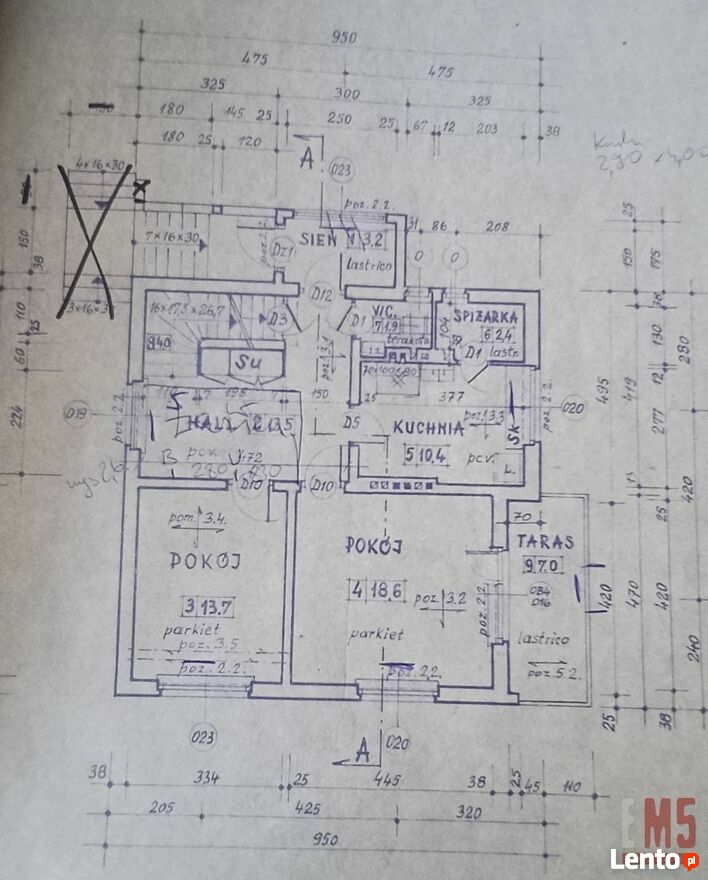 950
475 475
325 300 325
180 145 25 250 25 67 12 203 38
180 25 120
A
023
4×16×30
poz. 2.2.
31 86 208
7×16×30
DZ1
SIEŃ 1 3.2
lastrico
O O
25
150 175
150
38
3×16×3
110
25
60
224
D12
16×17,5×26,7
D3
D1
W.C.
7 1.9
terakota
104
SPIŻARKA
6 2.4
D1 lastr.
8 4.0
Su
38
130
280
12
495 419
277
019
poz. 2.2.
110 195 150
25
377
HALL 2 13.5
D5
KUCHNIA
poz. 3.3
5 10.4
pcv.
L.
SK
poz. 2.2.
020
pcv.
472
D10 D10
13
25
420
pom. 3.4.
POKÓJ
3 13.7
parkiet
poz. 3.5
poz. 2.2.
POKÓJ
4 18.6
poz. 3.2
parkiet
poz. 2.2.
poz. 2.2.
70
TARAS
9 7.0
OB4
016
lastrico
poz. 5.2.
420 470 420
240
25 38
023
A
020
38 334 25 445 38 25 45 110
205 425 320
950
EM5
Lento.pl